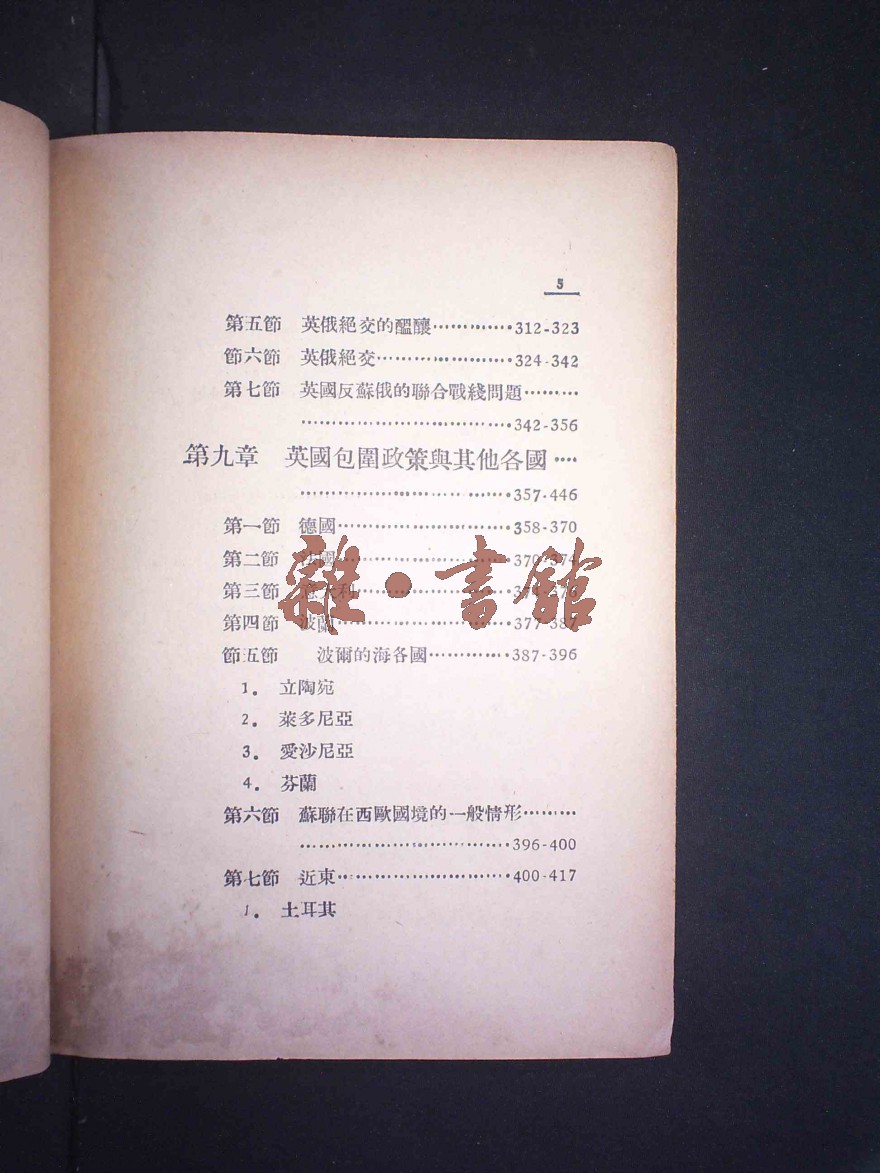 5
第五節 英俄絕交的醞釀··············312-323
節六節 英俄絕交······················324-342
第七節 英國反蘇俄的聯合戰綫問題·········
··································342-356
第九章 英國包圍政策與其他各國····
··································357-446
第一節 德國····························358-370
第二節 法國····························370-374
雜·書館
第三節 意大利
第四節 波蘭····························377-387
節五節 波爾的海各國··············387-396
1. 立陶宛
2. 萊多尼亞
3. 愛沙尼亞
4. 芬蘭
第六節 蘇聯在西歐國境的一般情形·········
··································396-400
第七節 近東····························400-417
1. 土耳其